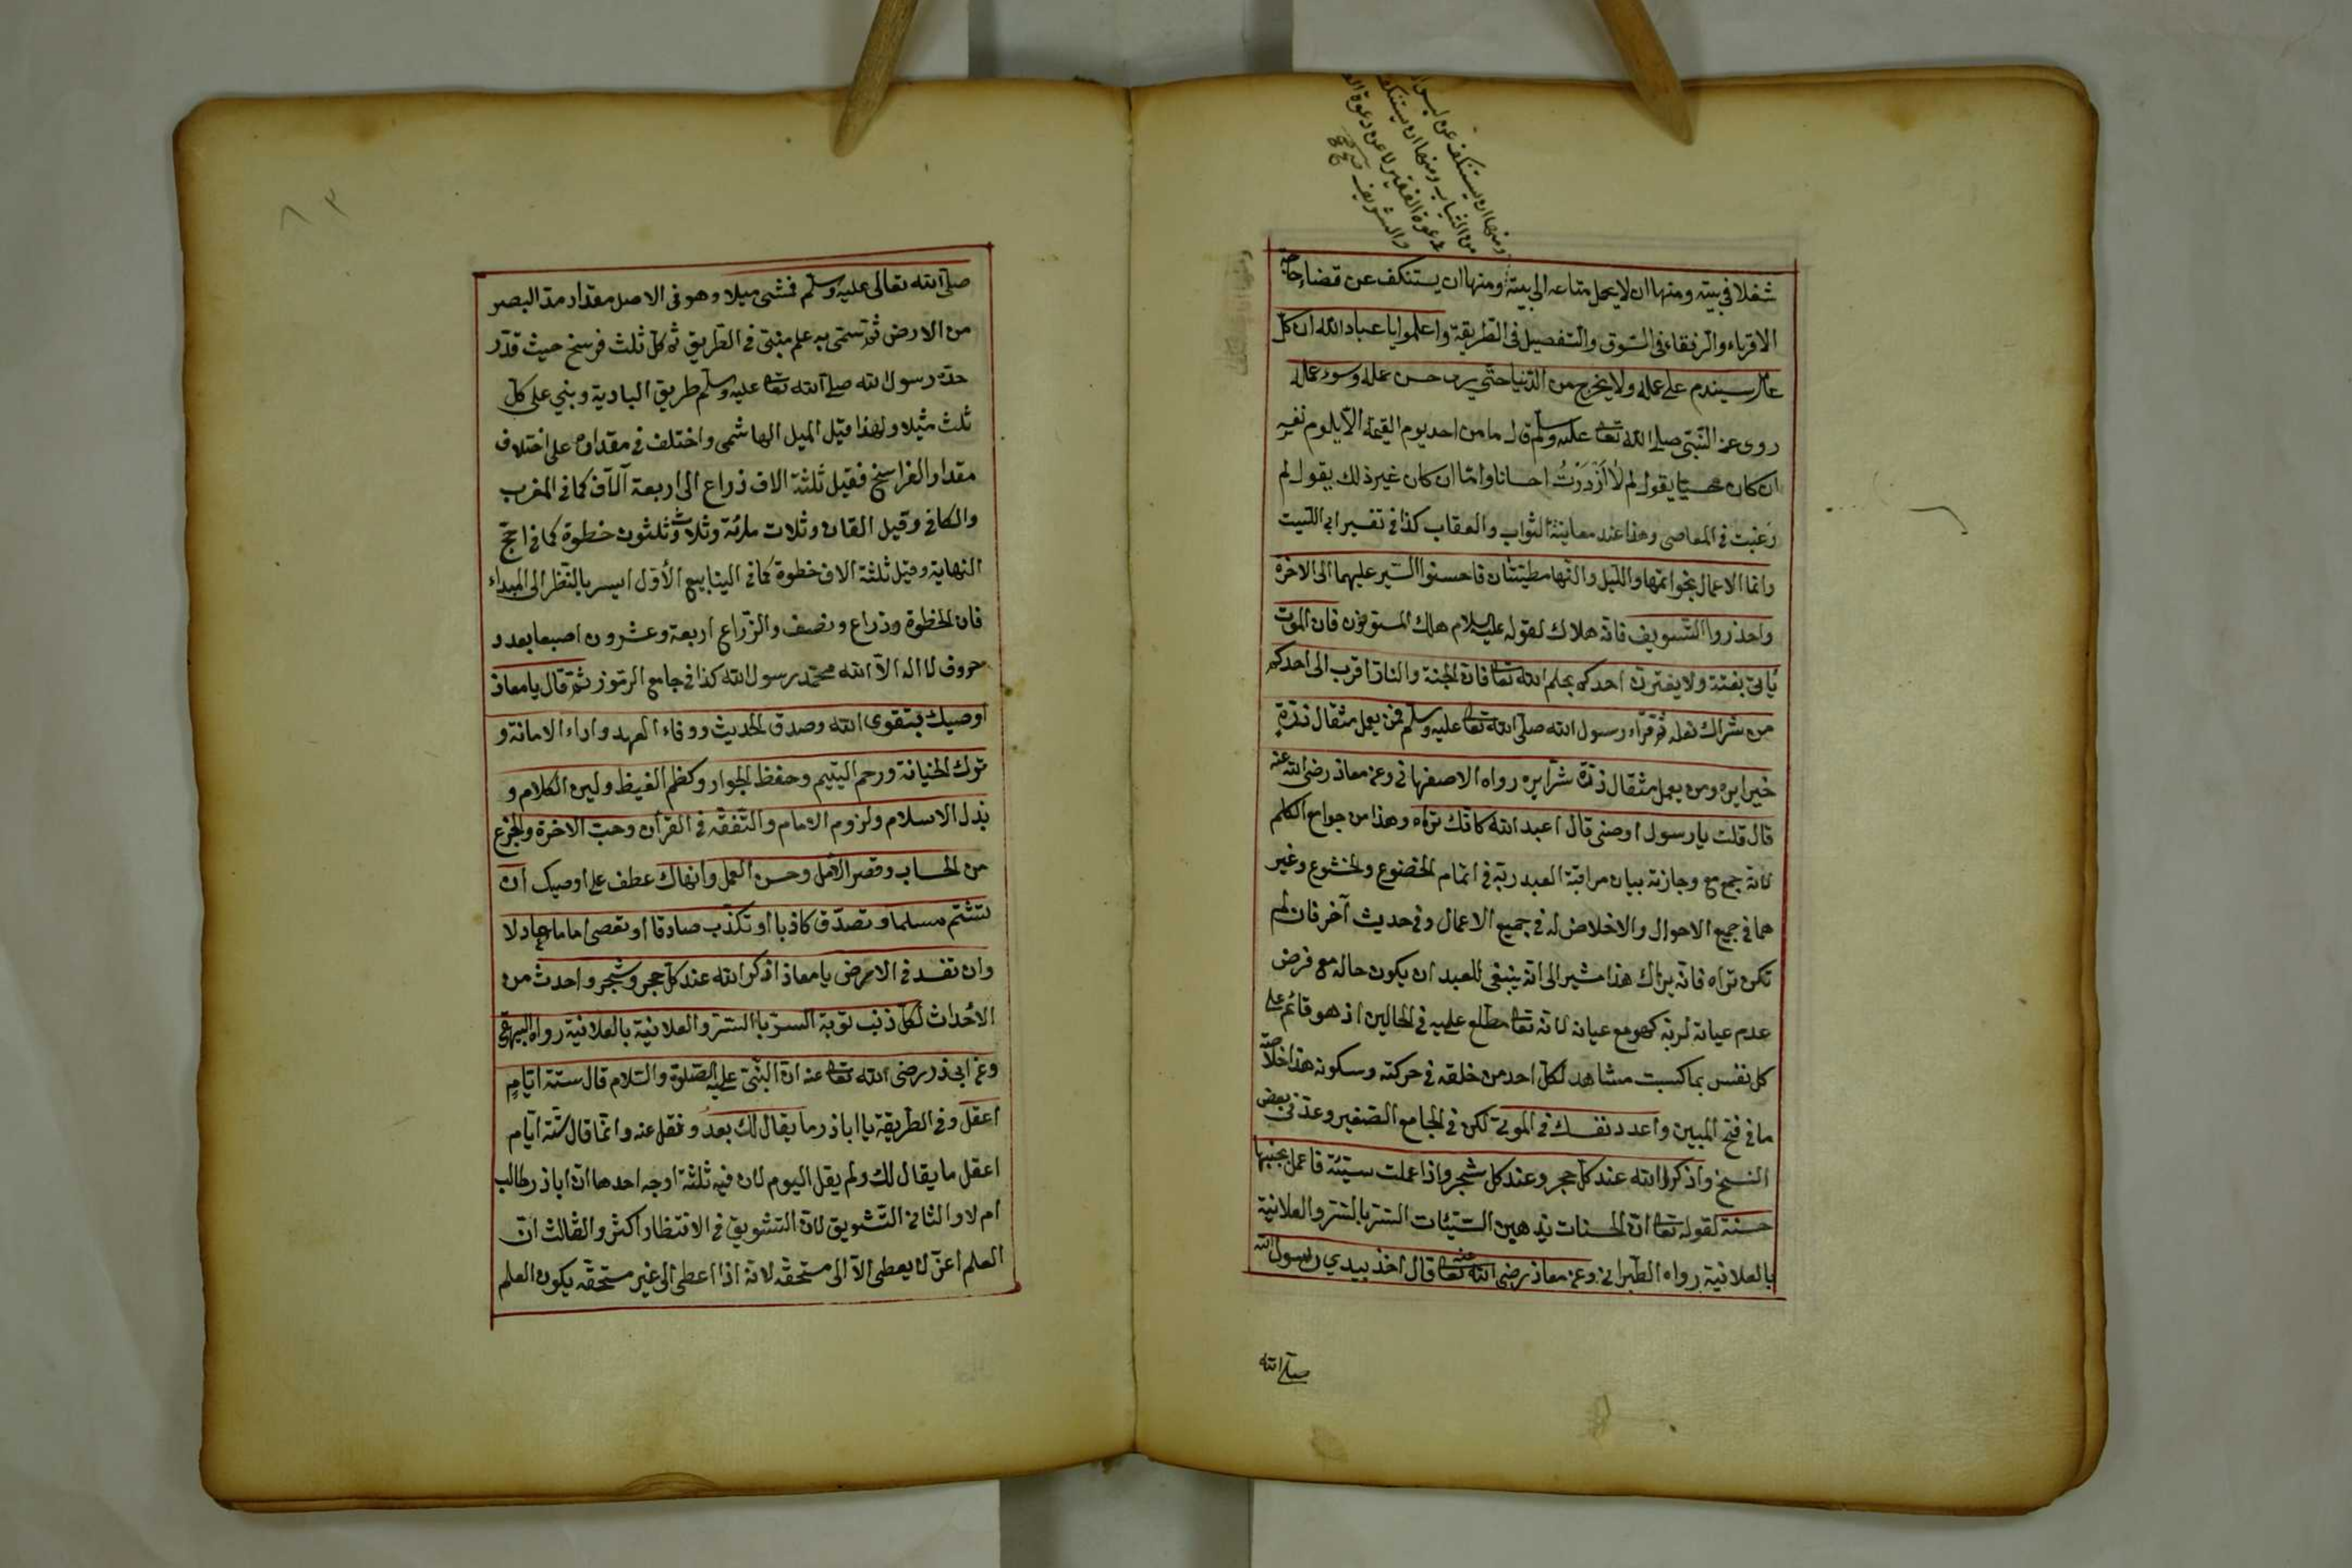 ومنها ان يستنكف عن لبس
من الثياب ومنها ان يستنكف
دعوة الفقير لا عن دعوة
والشريف
شغلا فى بيته ومنها ان لا يحمل متاعه الى بيته ومنها ان يستنكف عن قضاء حاجة
الاقرباء والرفقاء فى السّوق والتّفصيل فى الطّريقة واعلموا يا عباد الله ان كلّ
عامل سيندم على عمله ولا يخرج من الدّنيا حتّى يرى حسن عمله وسوء عمله
روى عن النّبىّ صلى الله تعا عليه وسلم قال ما من احد يوم القيمة الّا يلوم نفسه
ان كان محسنا يقول لم لا ازددت احسانا وامّا ان كان غير ذلك يقول لم
رغبت فى المعاصى وهذا عند معاينة الثواب والعقاب كذا فى تفسير ابى اللّيث
وانما الاعمال بخواتمها واللّيل والنّهار مطيّتان فاحسنوا السّير عليهما الى الاخرة
واحذروا التّسويف فانّه هلاك لقوله عليه السلام هلك المسوّفون فان الموت
يأتى بغتة ولا يغترّن احدكم بحلم الله تعا فان الجنة والنار اقرب الى احدكم
من شراك نعله ثم قرأ رسول الله صلى الله تعا عليه وسلم فمن يعمل مثقال ذرّة
خيرا يره ومن يعمل مثقال ذرّة شرّا يره رواه الاصفهانى وعن معاذ رضى الله عنه
قال قلت يا رسول اوصنى قال اعبد الله كانّك تراه وهذا من جوامع الكلم
لانّه جمع مع وجازته بيان مراقبة العبد ربّه فى اتمام الخضوع والخشوع وغير
هما فى جميع الاحوال والاخلاص له فى جميع الاعمال وفى حديث آخر فان لم
تكن تراه فانّه يراك هذا مشير الى انّه ينبغى للعبد ان يكون حاله مع فرض
عدم عيانه لربّه كهو مع عيانه لانّه تعا مطّلع عليه فى الحالين اذ هو قائم على
كل نفس بما كسبت مشاهد لكلّ احد من خلقه فى حركته وسكونه هذا خلاصة
ما فى فتح المبين واعدد نفسك فى الموتى لكن فى الجامع الصّغير وعدّ فى بعض
النسخ واذكر الله عند كلّ حجر وعند كل شجر واذا عملت سيّئة فاعمل بجنبها
حسنة لقوله تعا انّ الحسنات يذهبن السّيّئات السّرّ بالسّرّ والعلانية
بالعلانية رواه الطّبرانى وعن معاذ رضى الله تعا عنه قال اخذ بيدي رسول الله
صلى الله
٨٣
صلى الله تعالى عليه وسلم فمشى ميلا وهو فى الاصل مقدار مدّ البصر
من الارض ثمّ سمّى به علم مبنىّ فى الطّريق ثم كلّ ثلث فرسخ حيث قدّر
حدّه رسول الله صلى الله تعا عليه وسلم طريق البادية وبنى على كلّ
ثلث ميلا ولهذا قيل الميل الهاشمى واختلف فى مقداره على اختلاف
مقدار الفراسخ فقيل ثلثة الاف ذراع الى اربعة آلاف كما فى المغرب
والكافى وقيل الفان وثلاث مائة وثلاث وثلثون خطوة كما فى حجّ
النهاية وقيل ثلثة الاف خطوة كما فى الينابيع الأوّل ايسر بالنّظر الى المبداء
فان الخطوة وذراع ونصف والذّراع اربعة وعشرون اصبعا بعدد
حروف لا اله الّا الله محمّد رسول الله كذا فى جامع الرّموز ثمّ قال يا معاذ
اوصيك بتقوى الله وصدق الحديث ووفاء العهد واداء الامانة و
ترك الخيانة ورحم اليتيم وحفظ الجوار وكظم الغيظ ولين الكلام و
بذل الاسلام ولزوم الامام والتّفقّه فى القرآن وحبّ الاخرة والجزع
من الحساب وقصر الأمل وحسن العمل وانهاك عطف على اوصيك ان
تشتم مسلما وتصدّق كاذبا او تكذّب صادقا او تعصى اماما عادلا
وان تفسد فى الارض يا معاذ اذكر الله عند كلّ حجر وشجر واحدث من
الأحداث لكلّ ذنب توبة السرّ بالسّرّ والعلانية بالعلانية رواه البيهقى
وعن ابى ذر رضى الله تعا عنه انّ النّبىّ عليه الصّلوة والسّلام قال ستة ايّامٍ
اعقل وفى الطّريقة يا اباذر ما يقال لك بعدُ ونقل عنه وانّما قال ستّة ايّام
اعقل ما يقال لك ولم يقل اليوم لان فيه ثلثة اوجه احدها انّ اباذر طالب
ام لا والثانى التّشويق لانّ التشويق فى الانتظار اكثر والثالث انّ
العلم اعزّ لا يعطى الّا الى مستحقّه لانّه اذا اعطى الى غير مستحقّه يكون العلم